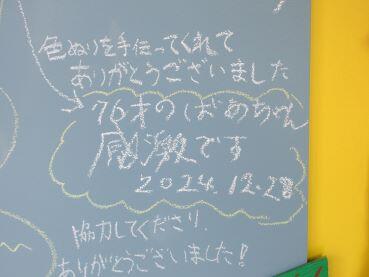 色ぬりを手伝ってくれて
ありがとうございました
76才のばあちゃん
感激です
2024.12.28
協力してくださり、
ありがとうございました!